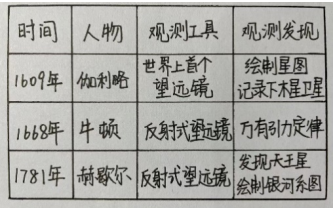 时间 人物 观测工具 观测发现
1609年 伽利略 世界上首个望远镜 绘制星图 记录下木星卫星
1668年 牛顿 反射式望远镜 万有引力定律
1781年 赫歇尔 反射式望远镜 发现天王星 绘制银河系图